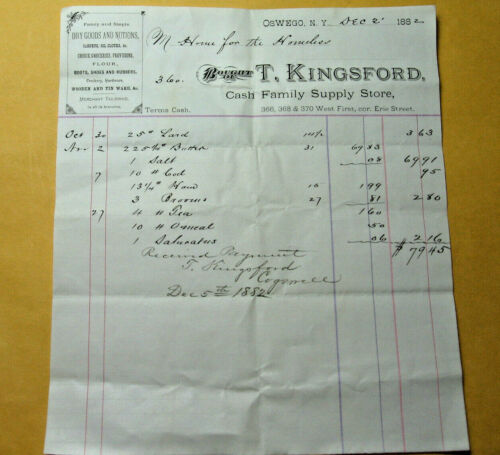 Fancy and Staple
DRY GOODS AND NOTIONS,
CARPETS, OIL CLOTHS, &c.
CHOICE GROCERIES, PROVISIONS,
FLOUR,
BOOTS, SHOES AND RUBBERS,
Crockery, Hardware,
WOODEN AND TIN WARE, &c.
MERCHANT TAILORING,
OSWEGO, N. Y. Dec 2 1882
M Home for the Homeless
360.
BOUGHT OF T. KINGSFORD,
Cash Family Supply Store,
Terms Cash. 366, 368 & 370 West First, cor. Erie Street.
Oct 30 25 " Lard 14 1/2 3 63
Nov 2 225 1/2 " Butter 31 69 83
1 Salt 08 69 91
7 10 " Cod 95
13 1/4 " Ham 15 1 99
3 Brooms 27 81 2 80
27 4 " Tea 1 60
10 " Oatmeal 50
1 Saleratus 06 2 16
$ 79 45
Received Payment
T. Kingsford
Cogswell
Dec 5th 1882